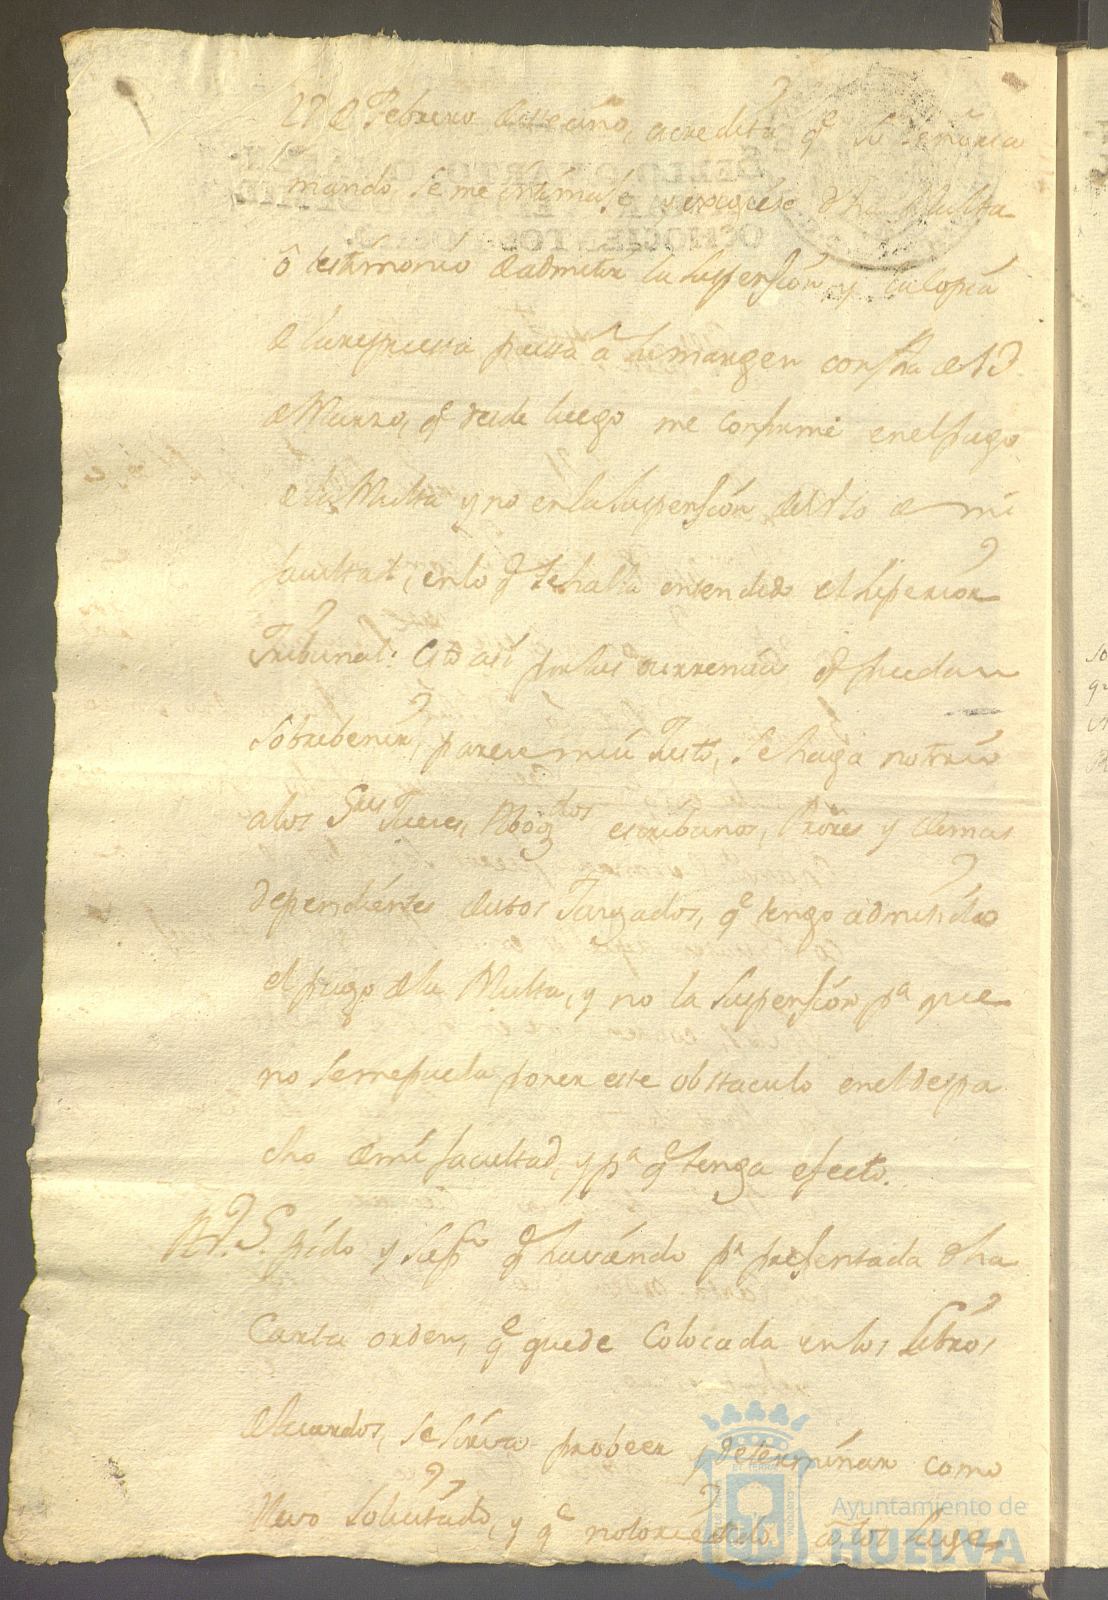 27 de Febrero deste año, acredita qe su señoria
mando se me intimase y exsigiese dha Multa
ô testimonio de admitir la suspensión, y la copia
de la respuesta puesta a su margen con fha de 13
de Marzo, qe desde luego me conformé en el pago
de la Multa y no en la suspensión del Uso de mi
facultad, en lo qe se halla entendido el Superior
Tribunal: Esto asi por las ocurrencias qe puedan
sobrebenir, parece mui Justo, se haga notorio
a los Sres Jueces, Abogdos escribanos, Prôres y demas
dependientes de estos Juzgados, qe tengo admitido
el pago de la Multa, y no la suspensión pa que
no se me pueda poner este obstaculo en el despa
cho de mi facultad, y pa qe tenga efecto.
A V.S. pido y supco qe haviendo pr presentada dha
Carta orden, qe quede Colocada en los Libros
de Acuerdos, se sirva probeer y determinar como
llevo Solicitado, y qe notoriedado a los Juze
Ayuntamiento de
HUELVA